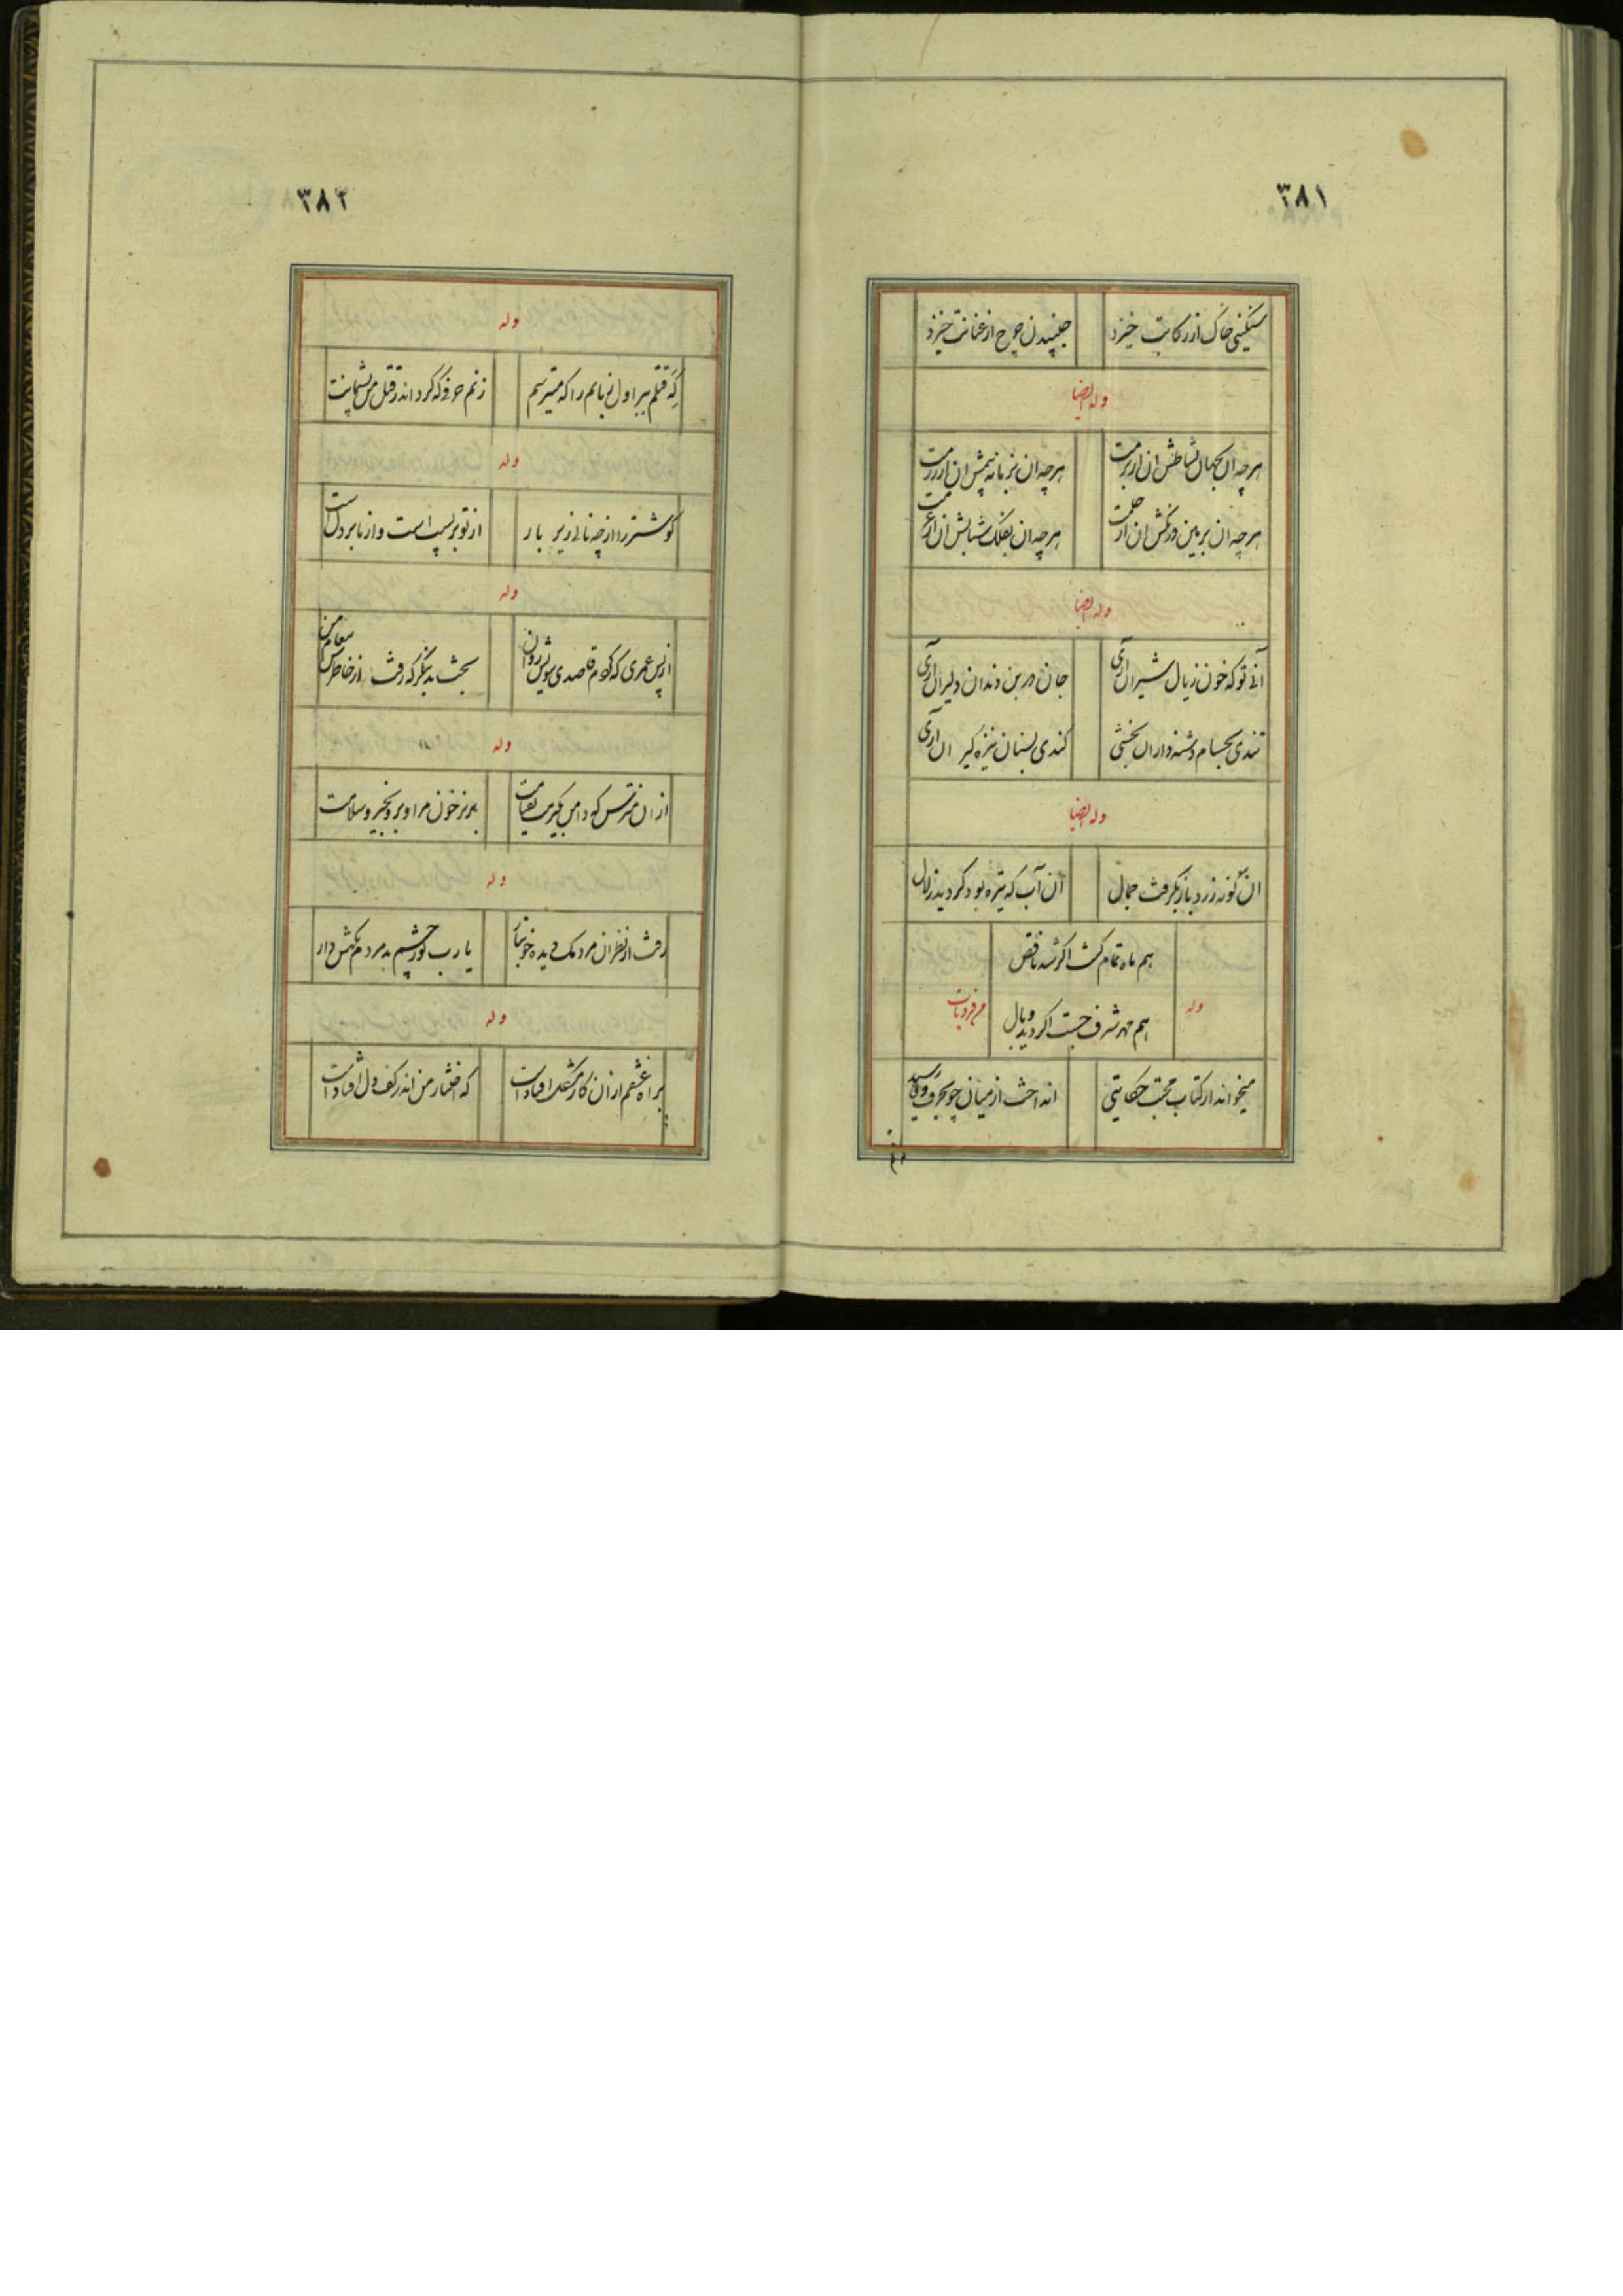 ۳۸۱
سنگینی خاک از رکابت خیزد جنبیدن چرخ از عنانت خیزد
وله ایضا
هرچه ان بجهان نشاطش ان از بزمت هرچه ان بزبانه تپش ان از رزمت
هرچه ان بزمین درنگش ان از حلمت هرچه ان بفلک شتابش ان از عزمت
وله ایضا
آنی تو که خون ز یال شیران آری جان در بن دندان دلیران آری
تندی بحسام دشنه داران بخشی کندی بسنان نیزه گیران آری
وله ایضا
ان گونه زرد باز بگرفت جمال آن آب که تیره بود گردید زلال
هم ماه تمام گشت اگر شد ناقص
وله هم مهر شرف جست اگر دید وبال من فردیات
میخواند از کتاب محبت حکایتی انداخت از میان چو بحرف وفا رسید
۳۸۲
وله
گه قتلم ببر اول زبانم را که میترسم زنم حرفی که گرداند ز قتل من پشیمانت
وله
گو شتر را از چه نالی زیر بار از تو بر پشت است و از ما بر دل است
وله
از پس عمری که کردم قاصدی سویش روان بخت بد بنگر که رفت از خاطرش پیغام من
وله
از ان مترس که دامن بگیرمت بقیامت بریز خون مرا و برو بخیر و سلامت
وله
رفت از نظر ان مردمک دیده خونبار یا رب تو ز چشم بد مردم نگهش دار
وله
براه عشقم از ان کار مشکل افتاد است که اختیار من اندر کف دل افتاد است